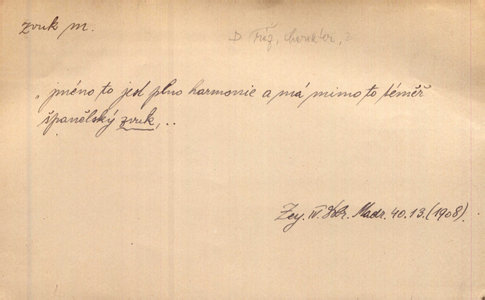 zvuk m.
„jméno to jest plno harmonie a má mimo to téměř
španělský zvuk, ..
Zey. IV. Dobr. Madr. 40.13. (1908).